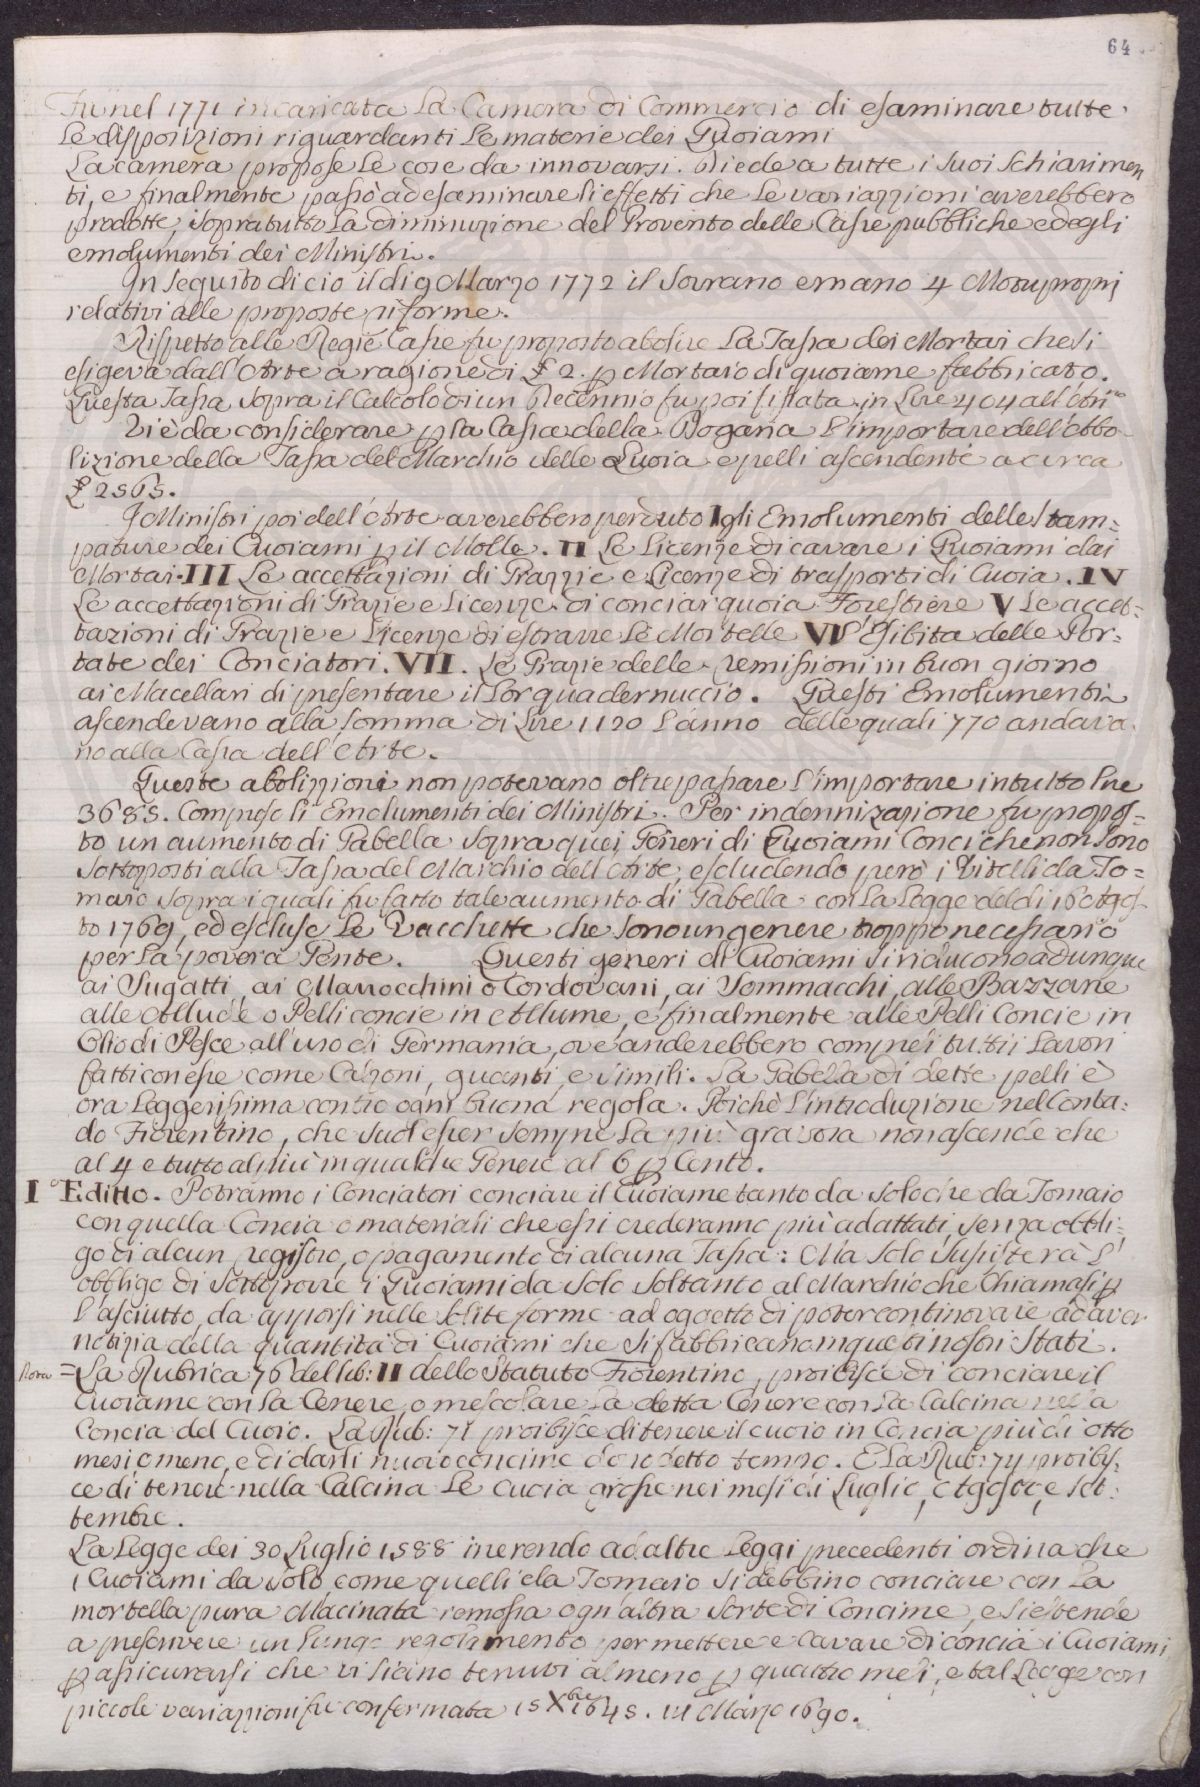 64
Fu nel 1771 incaricata La Camera di Commercio di esaminare tutte
Le disposizioni riguardanti Le materie dei Quoiami
La camera propose Le cose da innovarsi. Diede a tutte i suoi schiarimen
ti, e finalmente passò ad esaminare li effetti che Le variazzioni averebbero
prodotte, sopratutto La diminuzione del Provento delle Casse pubbliche e degli
emolumenti dei Ministri.
In seguito di cio il di 9 Marzo 1772 il Sovrano emanò 4 Motupropri
relativi alle proposte riforme.
Rispetto alle Regie Casse fu proposto abolire La Tassa dei Mortai che si
esigeva dall'Arte a ragione di £ 2. p Mortaio di quoiame fabbricato.
Questa Tassa sopra il Calcolo di un Decennio fu poi fissata in Lire 404 all'
Vi è da considerare p la Cassa della Dogana L'importare dell'Abo-
lizione della Tassa del Marchio delle Quoia e pelli ascendente a circa
£ 2565.
I Ministri poi dell'Arte averebbero perduto I gli Emolumenti delle Stam=
pature dei Cuoiami p il Molle. II Le Licenze di cavare i Quoiami dai
Mortai. III Le accettazioni di Grazzie e Licenze di trasporti di Cuoia. IV
Le accettazioni di Grazie e Licenze di conciar quoia Forestiere V Le accet=
tazioni di Grazie e Licenze di estrarre Le Mortelle VI L'Esibita delle Por=
tate dei Conciatori. VII. Le Grazie delle remissioni in buon giorno
ai Macellari di presentare il Lor quadernuccio. Questi Emolumenti
ascendevano alla somma di Lire 1120 L'anno delle quali 770 andava
no alla Cassa dell'Arte.
Queste abolizzioni non potevano oltrepassare L'importare in tutto Lire
3685. Comprese li Emolumenti dei Ministri. Per indennizazione fu propos=
to un aumento di Gabella sopra quei Generi di Cuoiami Conci che non sono
sottoposti alla Tassa del Marchio dell'Arte, escludendo però i Vitelli da To=
maio sopra i quali fu fatto tale aumento di Gabella con La Legge del di 16 Agos
to 1769, ed escluse Le Vacchette che sono un genere troppo necessario
per La povera Gente. Questi generi di Cuoiami si riducono adunque
ai Sugatti, ai Marrocchini o Cordovani, ai Sommacchi, alle Bazzane
alle Allude o Pelli concie in Allume, e finalmente alle Pelli Concie in
Olio di Pesce all'uso di Germania, ove anderebbero compresi tutti i Lavori
fatti con esse come Calzoni, guanti, e simili. La Gabella di dette pelli è
ora Leggerissima contro ogni buona regola. Poichè L'introduzione nel Conta=
do Fiorentino, che suol esser sempre La più gravosa non ascende che
al 4 e tutto al più in qualche Genere al 6 p Cento.
I° Editto. Potranno i Conciatori conciare il Cuoiame tanto da Solo che da Tomaio
con quella Concia o materiali che essi crederanno più adattati, senza obbli=
go di alcun registro, o pagamento di alcuna Tassa: Ma solo sussisterà L'
obbligo di sottoporre i Quoiami da Solo soltanto al Marchio che chiamasi p
L'asciutto, da apporsi nelle solite forme ad oggetto di poter continovare ad aver
notizia della quantità di Cuoiami che si fabbricano in questi nostri Stati.
Nota = La Rubrica 76 del Lib: II dello Statuto Fiorentino, proibisce di conciare il
Cuoiame con La Cenere, o mescolare La detta Cenere con La Calcina nella
Concia del Cuoio. La Rub: 71 proibisce di tenere il cuoio in Concia più di otto
mesi o meno, e di darli nuovo concime dopo detto tempo. E La Rub: 74 proibis=
ce di tenere nella Calcina Le cuoia grosse nei mesi di Luglio, Agosto, e Set=
tembre.
La Legge dei 30 Luglio 1588 inerendo ad altre Leggi precedenti ordina che
i Cuoiami da Solo, come quelli da Tomaio si debbino conciare con La
mortella pura Macinata remossa ogn'altra sorte di Concime, e si estende
a prescrivere un lungo regolamento per mettere e cavare di concia i Cuoiami
p assicurarsi che vi siano tenuti almeno p quattro mesi, e tal Legge con
piccole variazzioni fu confermata 15 Xbre 1645. ed Marzo 1690.